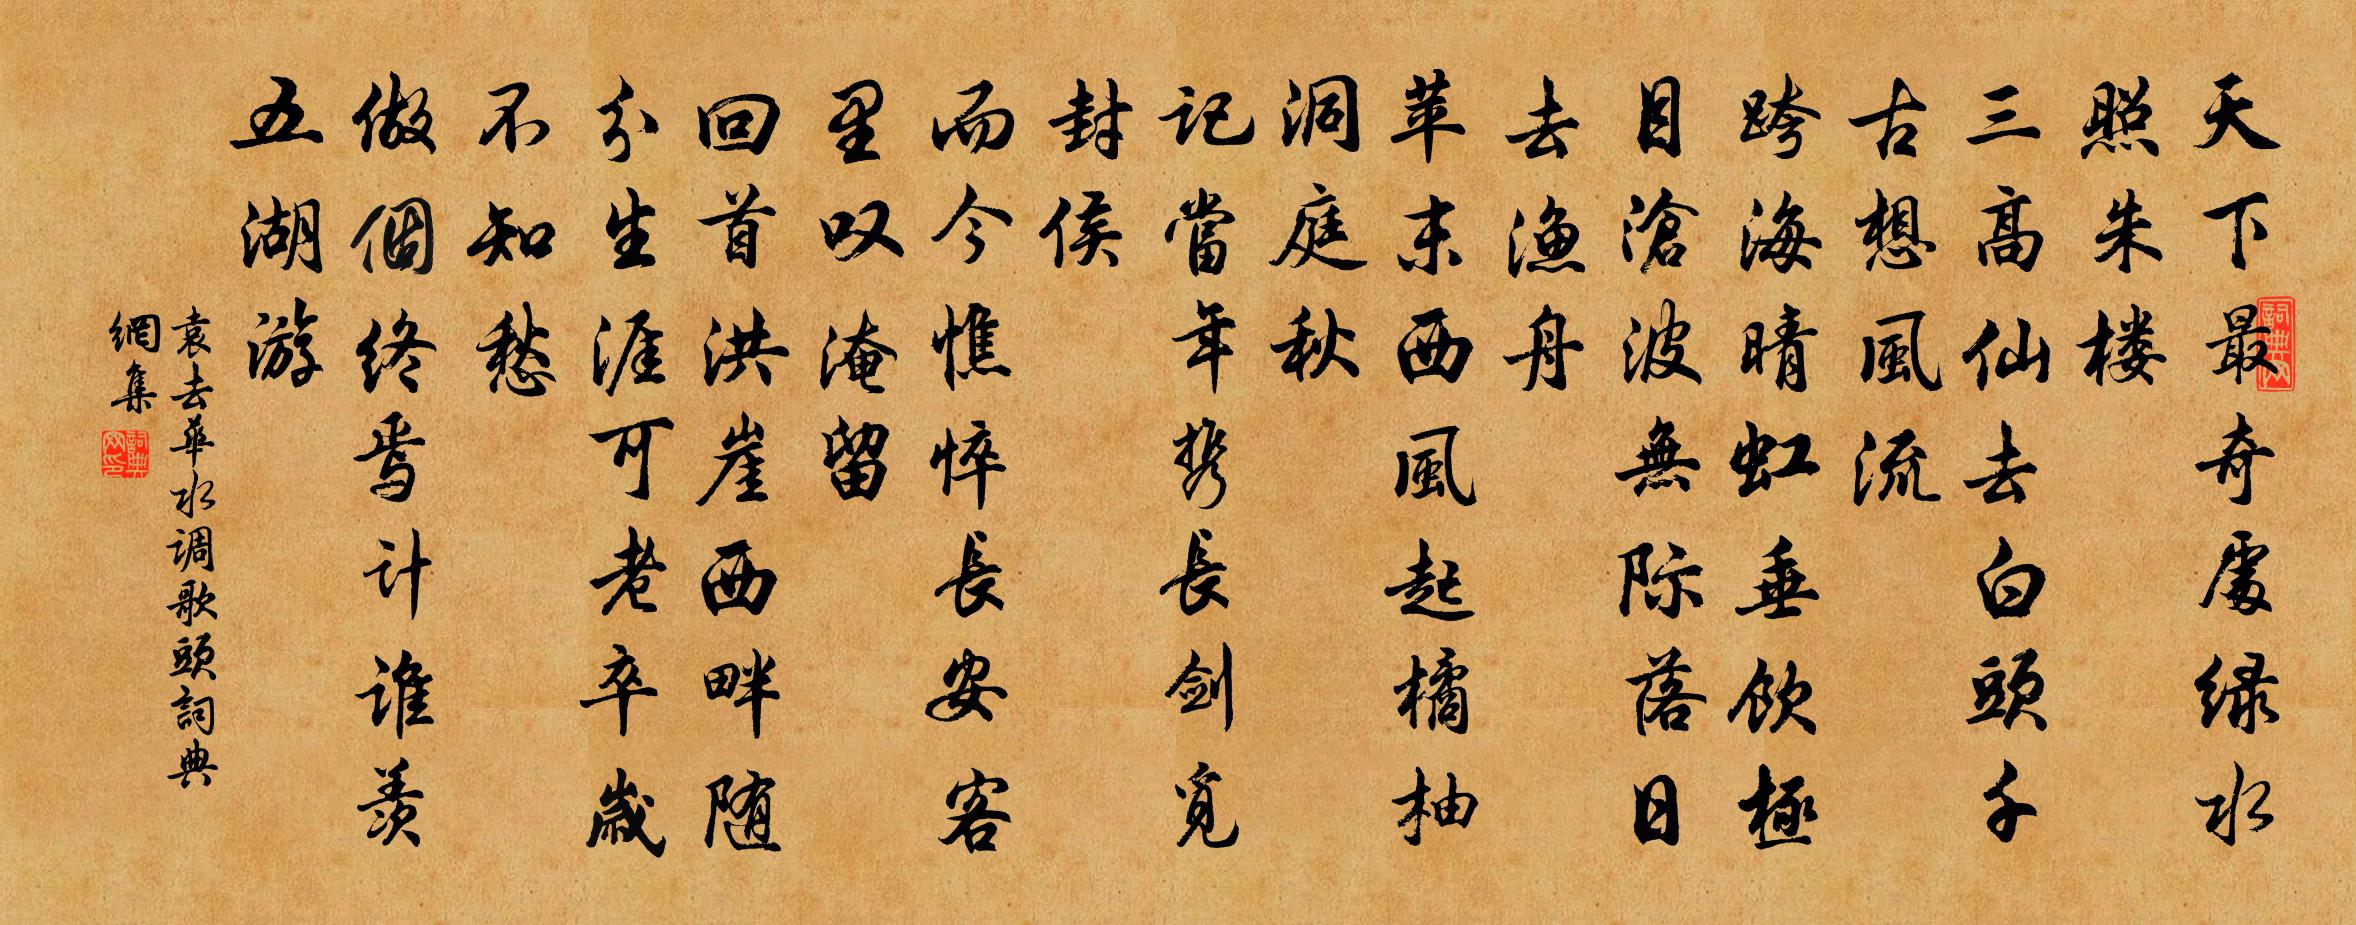 天下最奇處绿水
照朱楼
三高仙去白頭千
古想風流
跨海晴虹垂飲極
目滄波無际落日
去漁舟
苹末西風起橘柚
洞庭秋
记當年携長剑觅
封侯
而今憔悴長安客
里叹淹留
回首洪崖西畔随
分生涯可老卒歲
不知愁
做個终焉计谁羡
五湖游
袁去華水调歌頭詞典
網集
詞典网
詞典网印